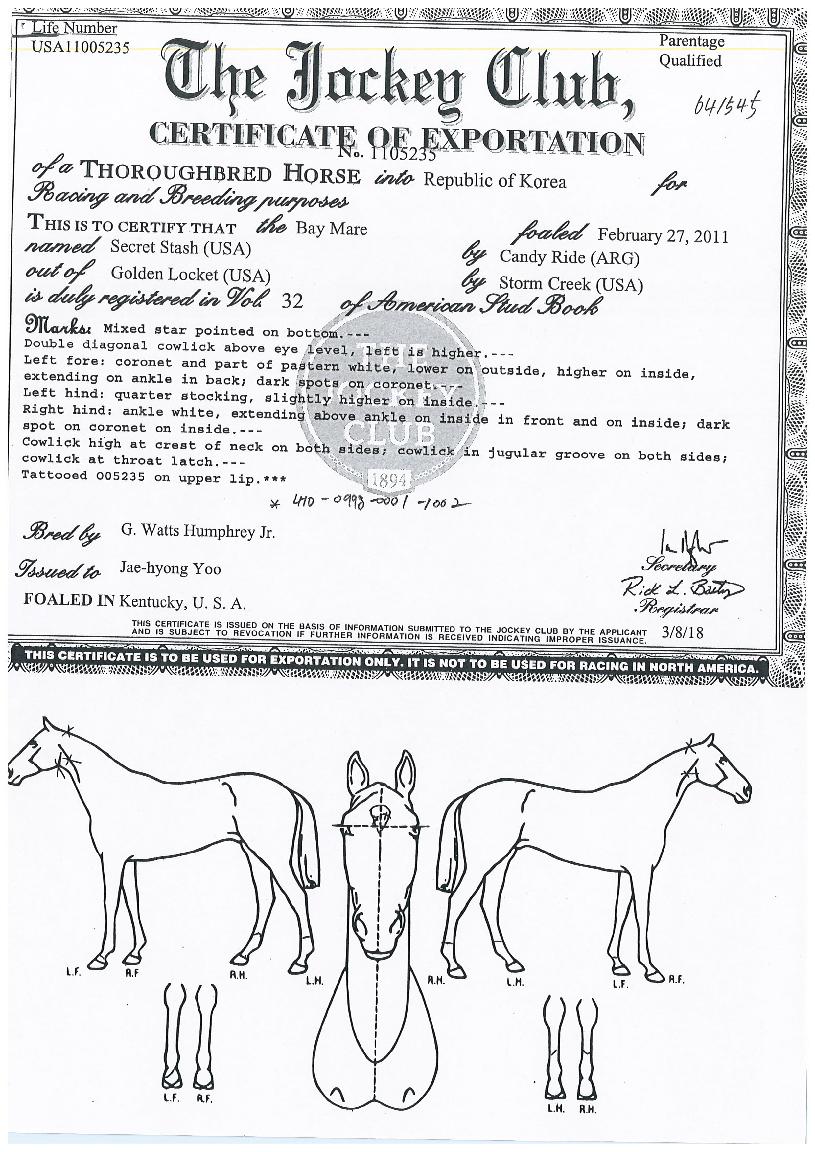 Life Number
USA11005235
Parentage
Qualified
The Jockey Club,
641545
CERTIFICATE OF EXPORTATION
No. 1105235
of a THOROUGHBRED HORSE into Republic of Korea for
Racing and Breeding purposes
THIS IS TO CERTIFY THAT the Bay Mare foaled February 27, 2011
named Secret Stash (USA) by Candy Ride (ARG)
out of Golden Locket (USA) by Storm Creek (USA)
is duly registered in Vol. 32 of American Stud Book
Marks: Mixed star pointed on bottom.---
Double diagonal cowlick above eye level, left is higher.---
Left fore: coronet and part of pastern white, lower on outside, higher on inside,
extending on ankle in back; dark spots on coronet.---
Left hind: quarter stocking, slightly higher on inside.---
Right hind: ankle white, extending above ankle on inside in front and on inside; dark
spot on coronet on inside.---
Cowlick high at crest of neck on both sides; cowlick in jugular groove on both sides;
cowlick at throat latch.---
Tattooed 005235 on upper lip.***
THE
JOCKEY
CLUB
1894
* 410-0998-0001-1002
Bred by G. Watts Humphrey Jr.
Secretary
Issued to Jae-hyong Yoo
Rick L. Bailey
Registrar
FOALED IN Kentucky, U. S. A.
THIS CERTIFICATE IS ISSUED ON THE BASIS OF INFORMATION SUBMITTED TO THE JOCKEY CLUB BY THE APPLICANT
AND IS SUBJECT TO REVOCATION IF FURTHER INFORMATION IS RECEIVED INDICATING IMPROPER ISSUANCE.
3/8/18
THIS CERTIFICATE IS TO BE USED FOR EXPORTATION ONLY. IT IS NOT TO BE USED FOR RACING IN NORTH AMERICA.
L.F. R.F R.H. L.H. R.H. L.H. L.F. R.F.
L.F. R.F. L.H. R.H.